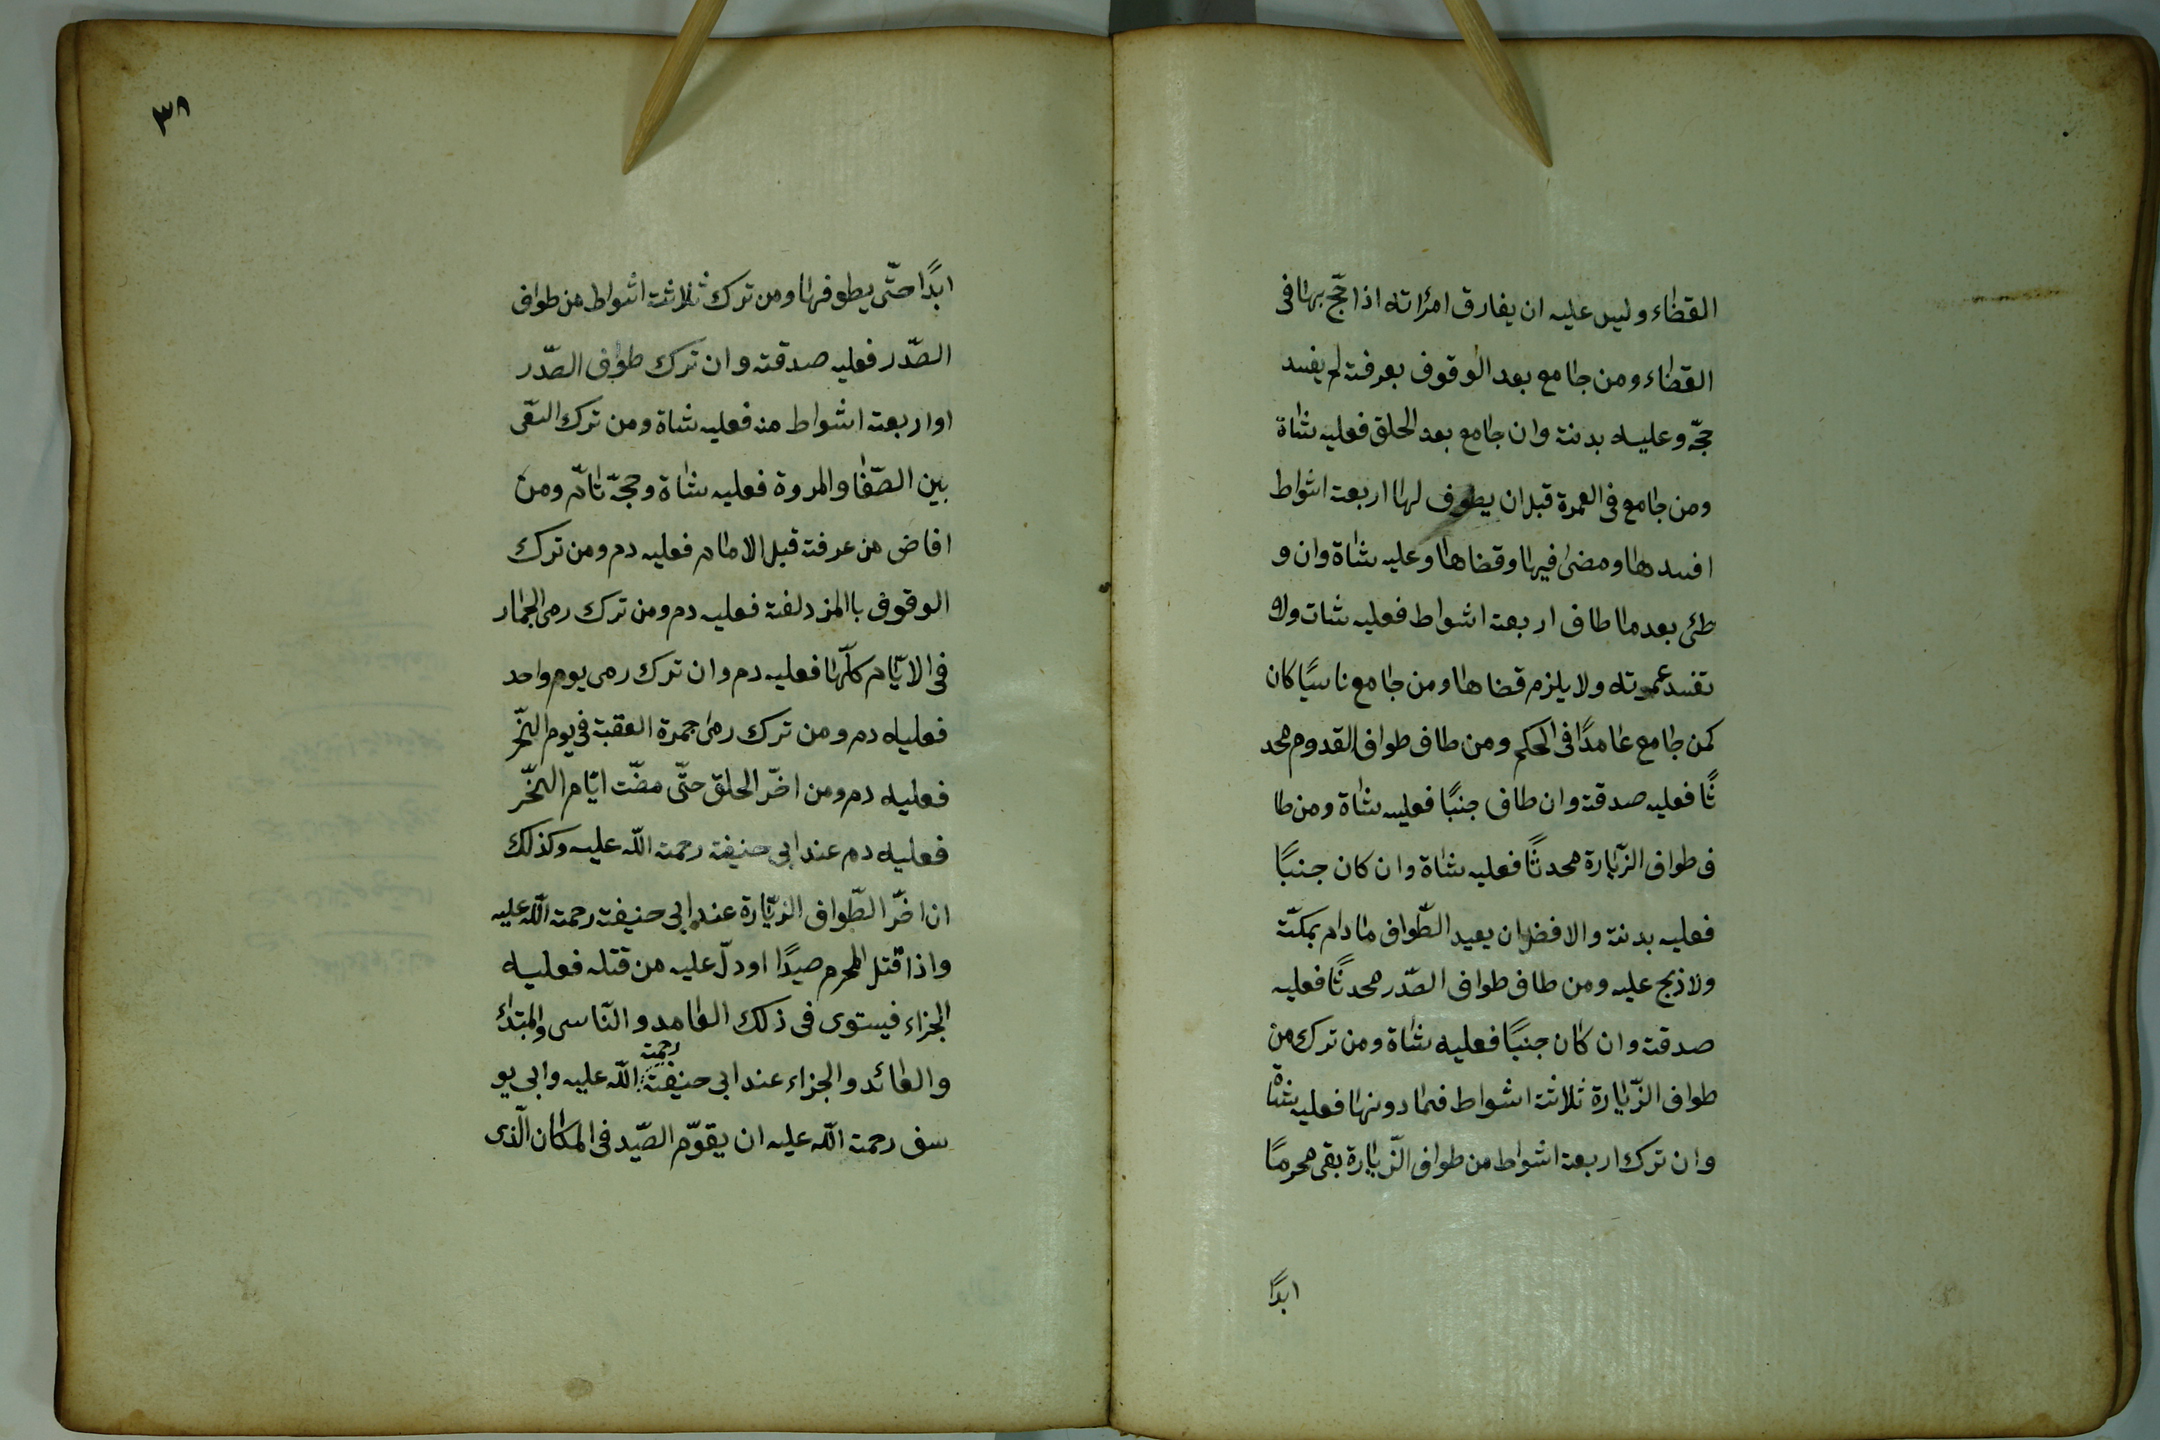 القضاء وليس عليه ان يفارق امرأته اذا حجّ بها فى
القضاء ومن جامع بعد الوقوف بعرفة لم يفسد
حجّه وعليه بدنة وان جامع بعد الحلق فعليه شاة
ومن جامع فى العمرة قبل ان يطوف لها اربعة اشواط
افسدها ومضى فيها وقضاها وعليه شاة وان و
طئ بعد ما طاف اربعة اشواط فعليه شات ولا
تفسد عمرته ولا يلزم قضاها ومن جامع ناسيًا كان
كمن جامع عامدًا فى الحكم ومن طاف طواف القدوم محد
ثًا فعليه صدقة وان طاف جنبًا فعليه شاة ومن طا
ف طواف الزّيارة محدثًا فعليه شاة وان كان جنبًا
فعليه بدنة والافضل ان يعيد الطّواف مادام بمكّة
ولا ذبح عليه ومن طاف طواف الصّدر محدثًا فعليه
صدقة وان كان جنبًا فعليه شاة ومن ترك من
طواف الزّيارة ثلاثة اشواط فما دونها فعليه شاة
وان ترك اربعة اشواط من طواف الزّيارة بقى محرمًا
ابدًا
٣٨
ابدًا حتّى يطوفها ومن ترك ثلاثة اشواط من طواف
الصّدر فعليه صدقة وان ترك طواف الصّدر
او اربعة اشواط منه فعليه شاة ومن ترك السّعى
بين الصّفا والمروة فعليه شاة وحجّه تامّ ومن
افاض من عرفة قبل الامام فعليه دم ومن ترك
الوقوف باالمزدلفة فعليه دم ومن ترك رمى الجمار
فى الايّام كلّها فعليه دم وان ترك رمى يوم واحد
فعليه دم ومن ترك رمى جمرة العقبة فى يوم النّحر
فعليه دم ومن اخّر الحلق حتّى مضّت ايّام النّحر
فعليه دم عند ابى حنيفة رحمة اللّه عليه وكذلك
ان اخّر الطّواف الزيّارة عند ابى حنيفة رحمة اللّه عليه
واذا قتل المحرم صيدًا او دلّ عليه من قتله فعليه
الجزاء فيستوى فى ذلك العامد والنّاسى والمبتدئ
والعائد والجزاء عند ابى حنيفة رحمة اللّه عليه وابى يو
سف رحمة اللّه عليه ان يقوّم الصّيد فى المكان الّذى